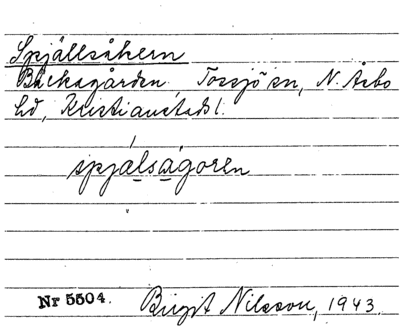 Spjällsåkern
Backagården Tossjö sn, N. Åsbo
hd, Kristianstads l.
spjálságoren
Nr 5504.
Birgit Nilsson, 1943.